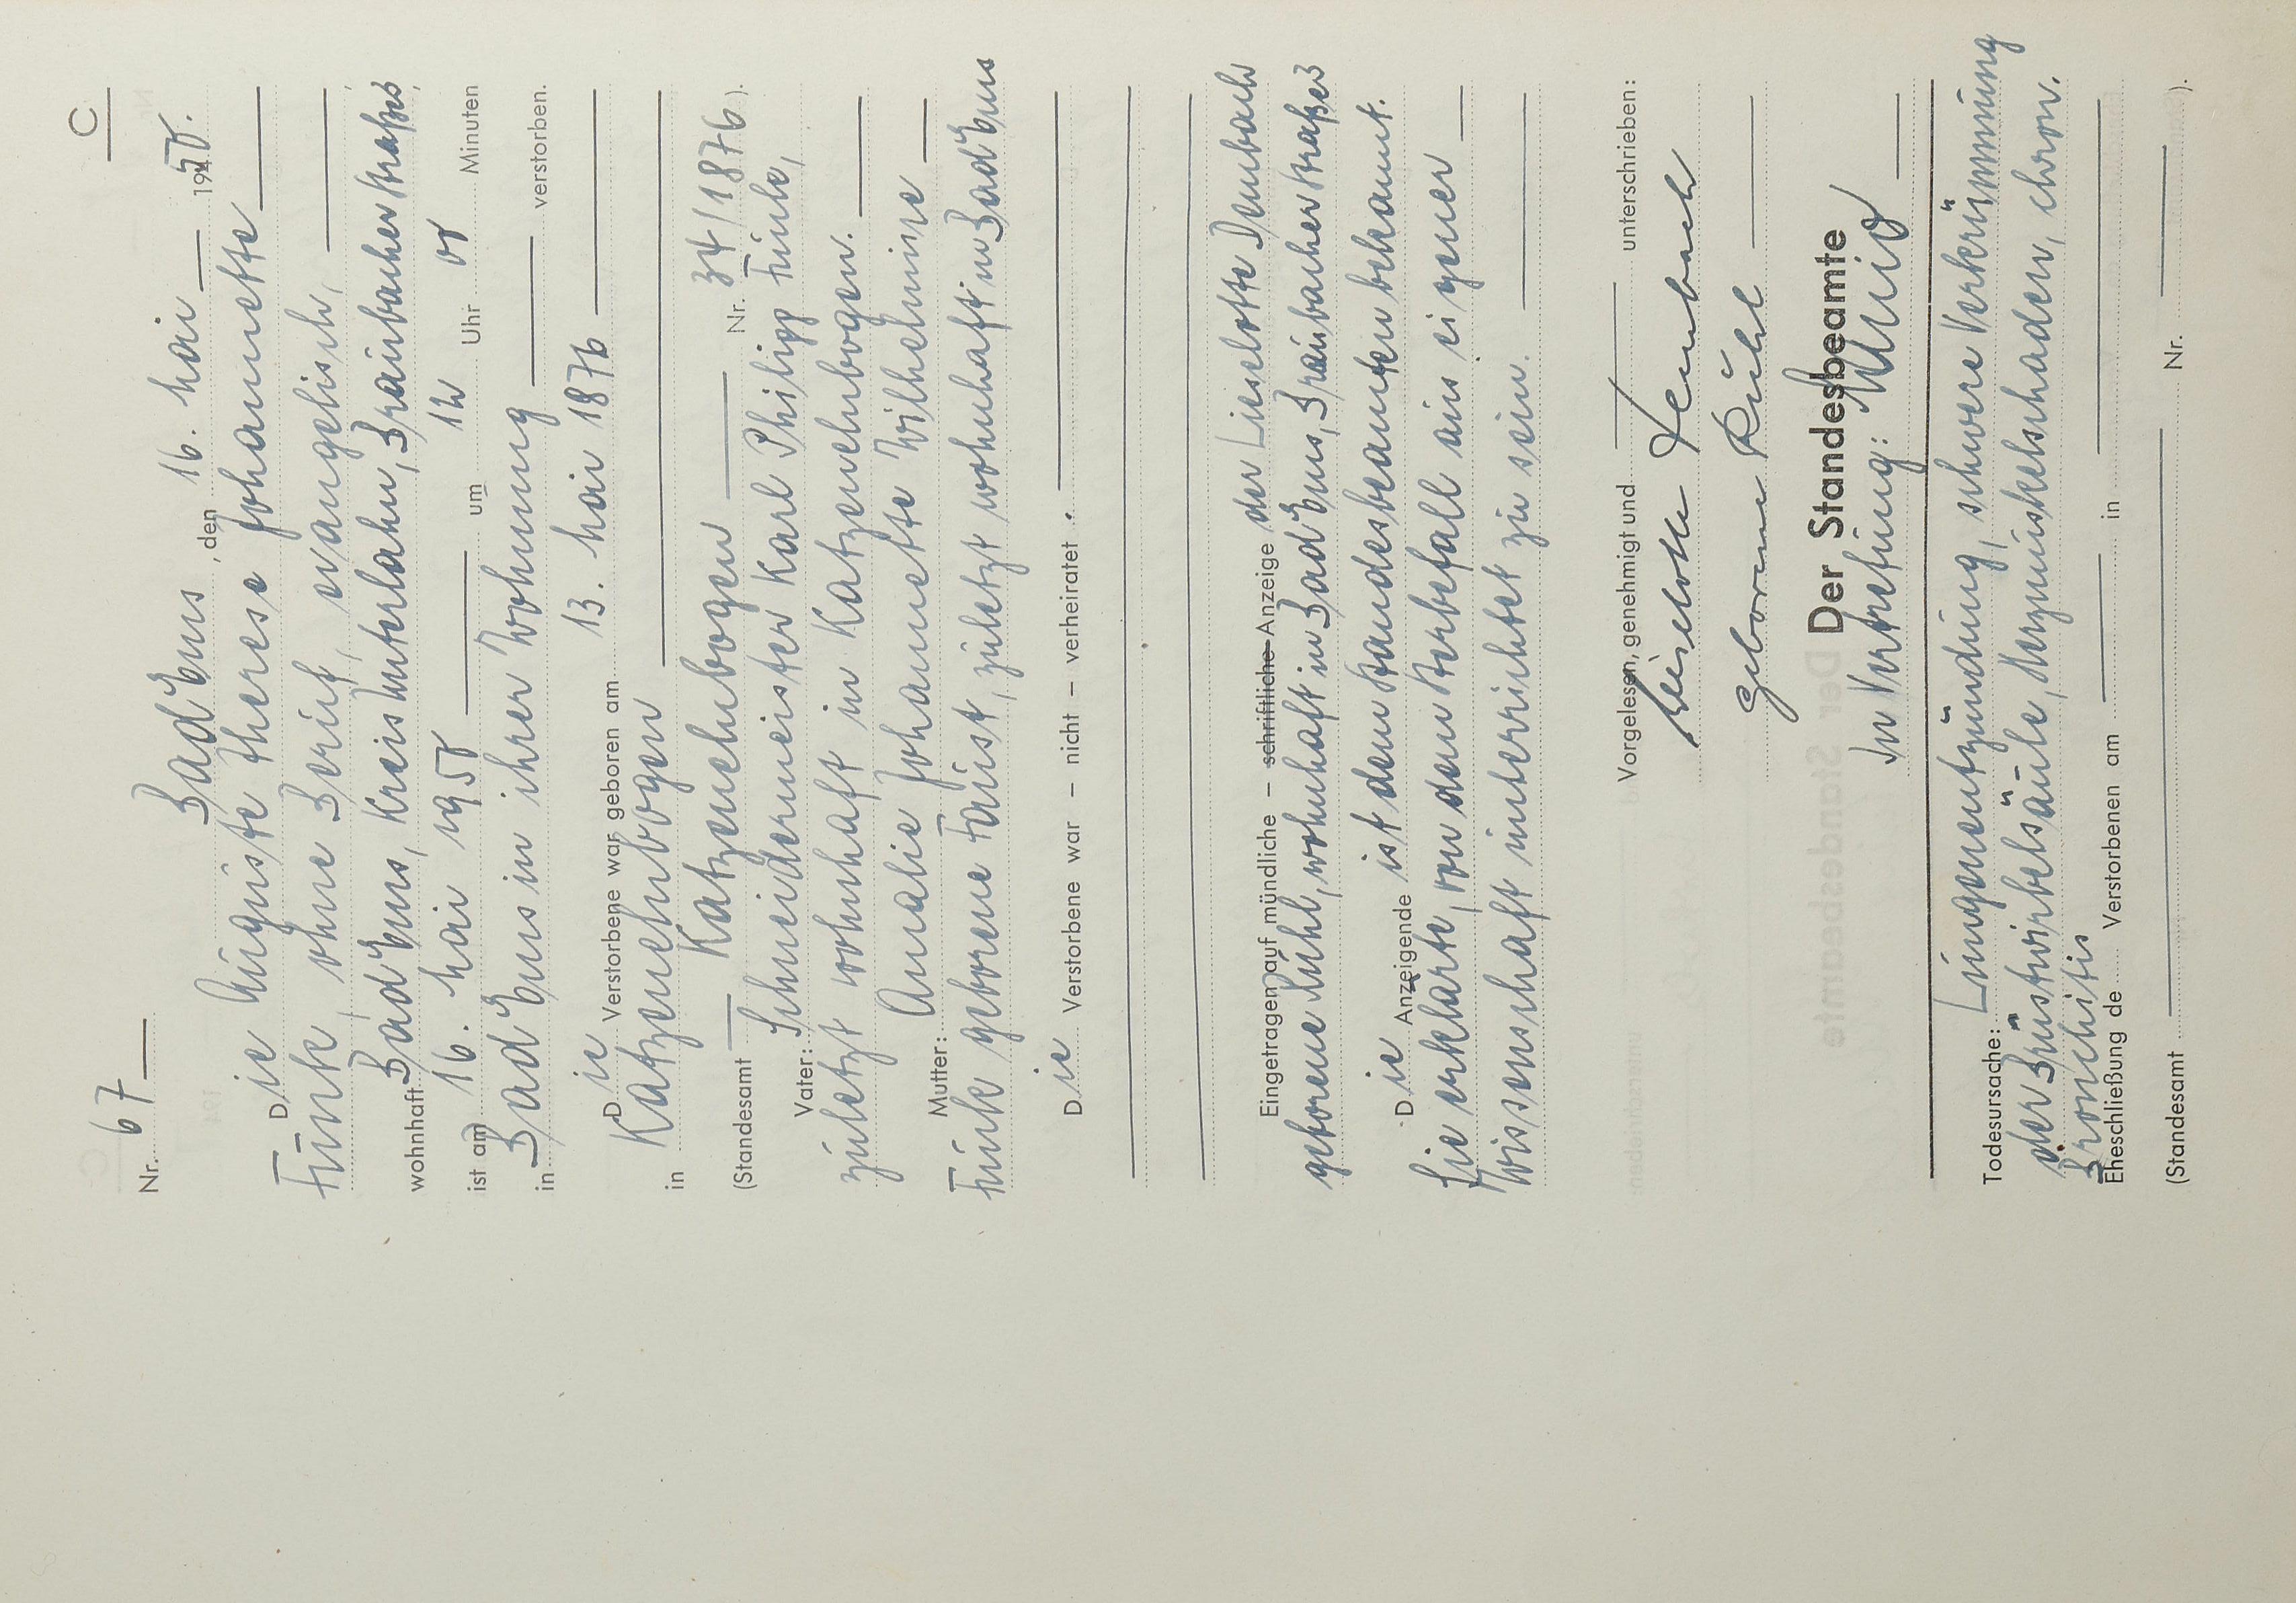 C
Nr. 67
Bad Ems, den 16. Mai 1950.
Die Auguste Therese Johannette
Funk, ohne Beruf, evangelisch,
wohnhaft Bad Ems, Kreis Unterlahn, Braubacherstraße 3,
ist am 16. Mai 1950 um 12 Uhr 05 Minuten
in Bad Ems in ihrer Wohnung verstorben.
Die Verstorbene war geboren am 13. Mai 1876
in Katzenelnbogen
(Standesamt Katzenelnbogen Nr. 34/1876).
Vater: Schneidermeister Karl Philipp Funk,
zuletzt wohnhaft in Katzenelnbogen.
Mutter: Amalie Johannette Wilhelmine
Funk geborene Faust, zuletzt wohnhaft in Bad Ems
Die Verstorbene war – nicht – verheiratet.
Eingetragen auf mündliche – schriftliche Anzeige der Lieselotte Denbach
geborene Rühl, wohnhaft in Bad Ems, Braubacherstraße 3
Die Anzeigende ist dem Standesbeamten bekannt.
Sie erklärte, von dem Sterbefall aus eigener
Wissenschaft unterrichtet zu sein.
Vorgelesen, genehmigt und unterschrieben:
Lieselotte Denbach
geborene Rühl
Der Standesbeamte
In Vertretung:
Todesursache: Lungenentzündung, schwere Verkrümmung
der Brustwirbelsäule, Herzmuskelschaden, chron.
Bronchitis
Eheschließung de Verstorbenen am in
(Standesamt Nr. ).